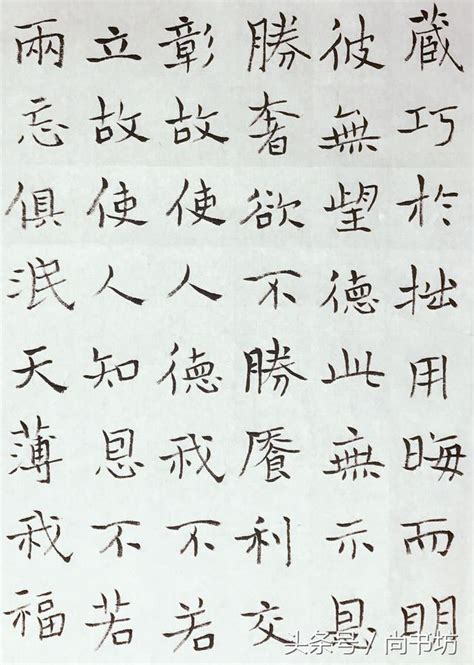 藏巧於拙用晦而明
彼無望德此無示恩
勝奢欲不勝饜利交
彰故使人德我不若
立故使人知恩不若
兩忘俱泯天薄我福
头条号 / 尚书坊